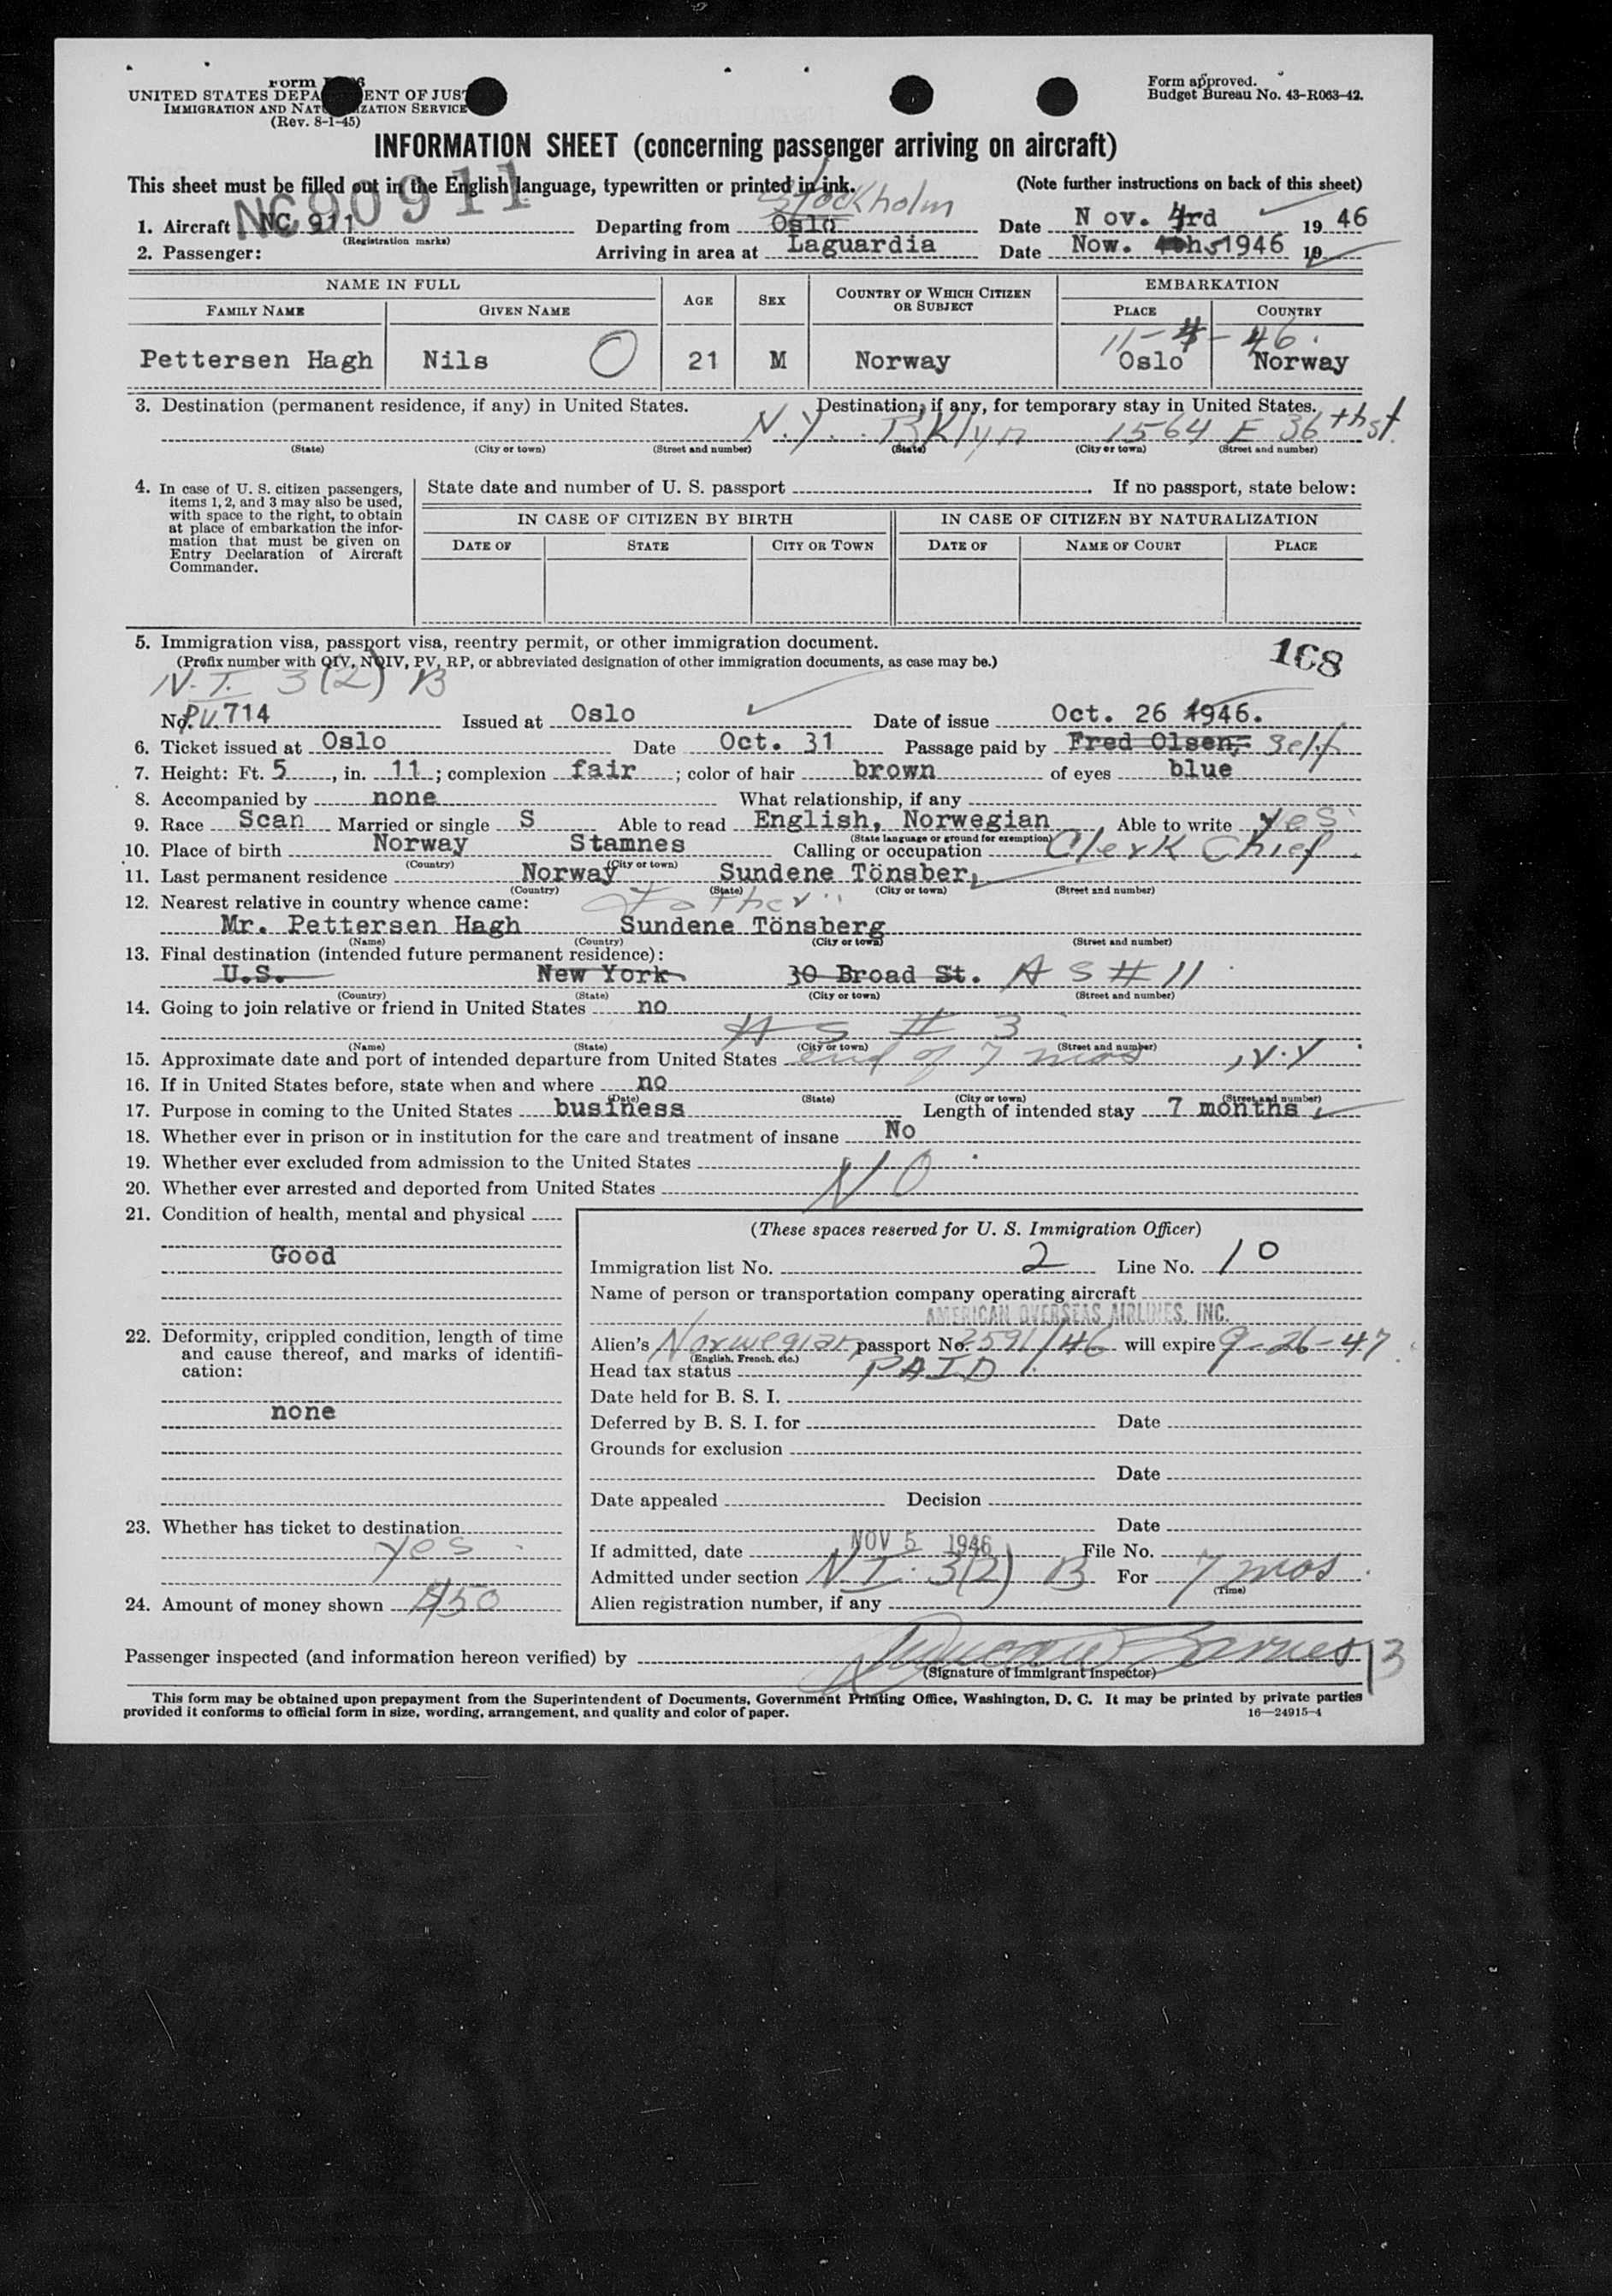 Form I-466
UNITED STATES DEPARTMENT OF JUSTICE
IMMIGRATION AND NATURALIZATION SERVICE
(Rev. 8-1-45)
Form approved.
Budget Bureau No. 43-R063-42.
INFORMATION SHEET (concerning passenger arriving on aircraft)
This sheet must be filled out in the English language, typewritten or printed in ink. (Note further instructions on back of this sheet)
NC90911 Stockholm
1. Aircraft NC 911 Departing from Oslo Date Nov. 4rd 1946
(Registration marks)
2. Passenger: Arriving in area at Laguardia Date Now. 5 1946 19
NAME IN FULL AGE SEX COUNTRY OF WHICH CITIZEN OR SUBJECT EMBARKATION
FAMILY NAME GIVEN NAME PLACE COUNTRY
11-4-46.
Pettersen Hagh Nils O 21 M Norway Oslo Norway
3. Destination (permanent residence, if any) in United States. Destination, if any, for temporary stay in United States.
N.Y. Bklyn 1564 E 36th st.
(State) (City or town) (Street and number) (State) (City or town) (Street and number)
4. In case of U. S. citizen passengers, items 1, 2, and 3 may also be used, with space to the right, to obtain at place of embarkation the information that must be given on Entry Declaration of Aircraft Commander.
State date and number of U. S. passport . If no passport, state below:
IN CASE OF CITIZEN BY BIRTH IN CASE OF CITIZEN BY NATURALIZATION
DATE OF STATE CITY OR TOWN DATE OF NAME OF COURT PLACE
5. Immigration visa, passport visa, reentry permit, or other immigration document.
(Prefix number with QIV, NQIV, PV, RP, or abbreviated designation of other immigration documents, as case may be.)
168
N.T. 3(2) B
No. P.V. 714 Issued at Oslo Date of issue Oct. 26 1946.
6. Ticket issued at Oslo Date Oct. 31 Passage paid by Fred Olsen, self
7. Height: Ft. 5, in. 11; complexion fair; color of hair brown of eyes blue
8. Accompanied by none What relationship, if any
9. Race Scan Married or single S Able to read English, Norwegian Able to write yes
(State language or ground for exemption)
10. Place of birth Norway Stamnes Calling or occupation Clerk Chief
(Country) (City or town)
11. Last permanent residence Norway Sundene Tönsber,
(Country) (State) (City or town) (Street and number)
12. Nearest relative in country whence came: Father
Mr. Pettersen Hagh Sundene Tönsberg
(Name) (Country) (City or town) (Street and number)
13. Final destination (intended future permanent residence):
U.S. New York 30 Broad St. A S # 11
(Country) (State) (City or town) (Street and number)
14. Going to join relative or friend in United States no
A S # 3
(Name) (State) (City or town) (Street and number)
15. Approximate date and port of intended departure from United States end of 7 mos N.Y
16. If in United States before, state when and where no
(Date) (State) (City or town) (Street and number)
17. Purpose in coming to the United States business Length of intended stay 7 months
18. Whether ever in prison or in institution for the care and treatment of insane No
19. Whether ever excluded from admission to the United States
NO
20. Whether ever arrested and deported from United States
21. Condition of health, mental and physical
Good
22. Deformity, crippled condition, length of time and cause thereof, and marks of identification:
none
23. Whether has ticket to destination
yes
24. Amount of money shown $50
(These spaces reserved for U. S. Immigration Officer)
Immigration list No. 2 Line No. 10
Name of person or transportation company operating aircraft
AMERICAN OVERSEAS AIRLINES, INC.
Alien's Norwegian passport No. 2591/46 will expire 9-26-47
(English, French, etc.)
Head tax status PAID
Date held for B. S. I.
Deferred by B. S. I. for Date
Grounds for exclusion
Date
Date appealed Decision
Date
If admitted, date NOV 5 1946 File No.
Admitted under section N.T. 3(2) B For 7 mos.
(Time)
Alien registration number, if any
Passenger inspected (and information hereon verified) by Barnes 13
(Signature of Immigrant Inspector)
This form may be obtained upon prepayment from the Superintendent of Documents, Government Printing Office, Washington, D. C. It may be printed by private parties
provided it conforms to official form in size, wording, arrangement, and quality and color of paper. 16—24915-4